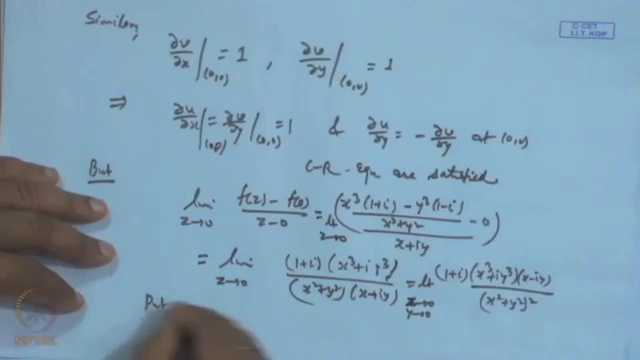 Similarly,
∂v/∂x|(0,0) = 1 , ∂v/∂y|(0,0) = 1
⇒ ∂u/∂x|(0,0) = ∂v/∂y|(0,0) = 1 & ∂u/∂y = - ∂v/∂x at (0,0)
C-R-Equ are satisfied
But
lim z→0 (f(z) - f(0))/(z-0) = lt z→0 ((x³(1+i) - y³(1-i))/(x³+y² ) - 0)/(x+iy)
= lim z→0 (1+i)(x³+iy³)/((x²+y²)(x+iy)) = lt x→0 y→0 (1+i)(x³+iy³)(x-iy)/(x²+y²)²
Put
© CET
I.I.T. KGP
NPTEL